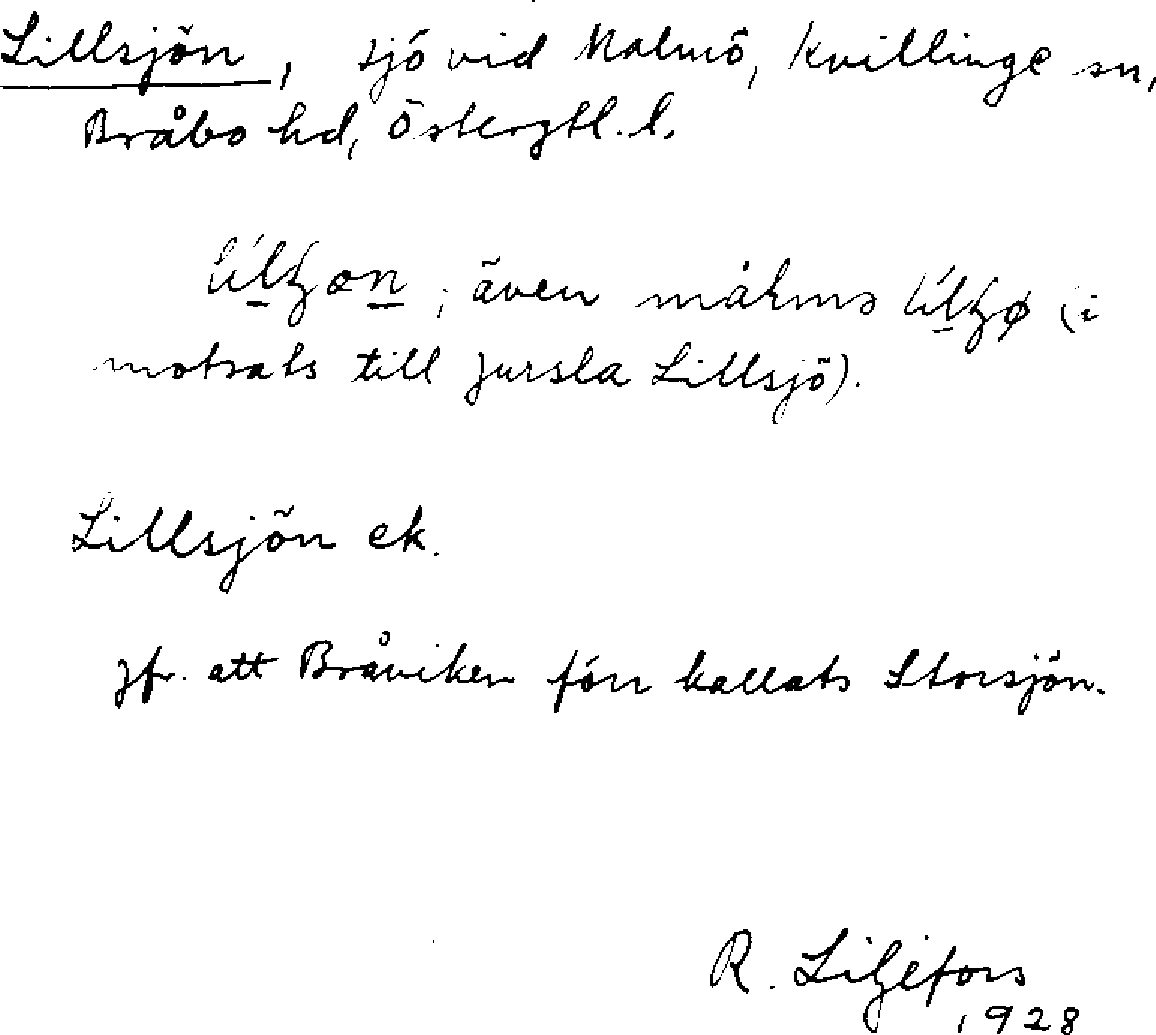 Lillsjön, sjö vid Malmö, Kvillinge sn,
Bråbo hd, Östergtl. l.
även
motsats till Jursla Lillsjö).
Lillsjön ek.
Jfr. att Bråviken förr kallats Storsjön.
R. Liljefors
1928